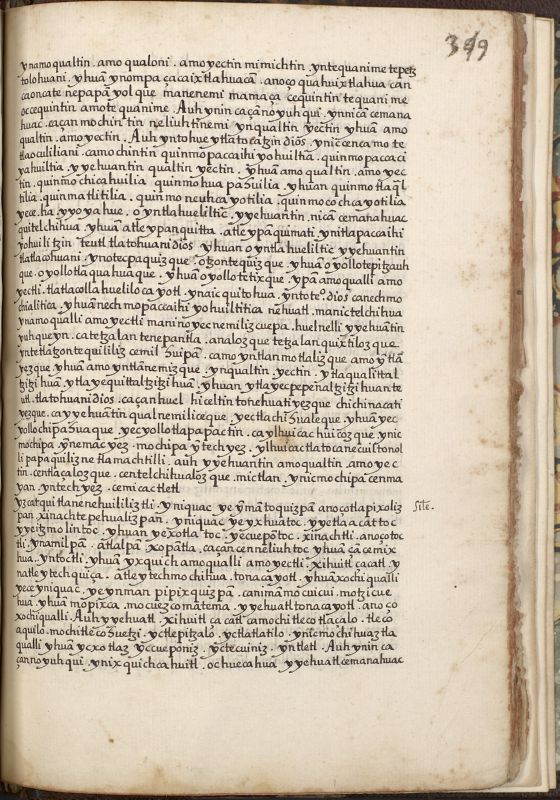 349
ynamo qualtin . amo qualoni . amo yectin mimichtin . yntequanime tepetz
tolohuani . yhuā ynompa çacaixtlahuacā . anoço quahuixtlahuacan
caoncate nepapā yolque manenemi mamaça cequintin tequanime
occequintin amo tequanime . Auh ynin caçāno yuhqui . ynnicā cemana
huac . caçan mochintin neliuhtinemi ynqualtin yectin . yhuā amo
qualtin . amo yectin . Auh yntohueytlatocatzin dios . ynic cenca mo te
tlaoculiliani . camo chintin quinmopaccaihiyohuiltia . quinmopaccaci
yahuiltia . yyehuantin qualtin yectin . yhuā amo qualtin . amo yec
tin . quinmochicahuilia . quinmohuapahuilia . yhuan quinmotlaq̄l
tilia . quinmatlitilia . quinmoneuhcayotilia . quinmocochcayotilia
yece . ha yyoyahue . oyntlahueliltic . yyehuantin . nicā cemanahuac
quitelchihua . yhuā atle ypan quitta . atle ypā quimati ynitlapaccaihi
yohuilitzin teutl tlatohuani dios yhuan oyntlahueliltic yyehuantin
tlatlacohuani ynotecpaquizque . otzontequizque yhuā oyollotepitzauh
que . oyollotlaquahuaque . yhuā oyollotetixque . ypā amo qualli amo
yectli . tlatlacollahuelilocayotl . ynaic quitohua . ynto teº . dios canechmo
chialitica . yhuā nechmopaccaihiyohuiltitica nehuatl . manictelchihua
ynamo qualli amo yectli maninoyecnemilizcuepa . huel nelli yyehuātin
yuhqueyn . catetzalan tenepantla . analozque tetzalan quixtilozque
yntetlatzontequililiz cemilhuipā . camo yntlan motlalizque amo ytlā
yezque . yhuā amo yntlā nemizque . ynqualtin yectin . ytlaqualittal
tzitzihuā ytlayequittaltzitzihuā . yhuan ytlayecpepenaltzitzihuan te
utl . tlatohuani dios . caçan huel hiceltin tonehuatiyezque chichinacati
yezque . cayyehuātin qualnemiliceque yectlachihualeque . yhuā yec
yollochipahuaque yecyollotlapapactin . caylhuicac huicozque ynic
mochipa ynemac yez . mochipa ytech yez . ylhuicactlatocanecuiltonol
li papaquiliznetlamachtilli . auh yyehuantin amo qualtin . amo yec
tin . centlaçalozque . centelchihualozque . mictlan . ynic mochipa cenma
yan . yntech yez . cemicac tletl
yzcatqui tlanenehuililiztli . yniquac yeymātoquizpā anoço tlapixoliz
pan . xinachtepehualizpan . yniquac yeyxhuatoc . yyetlacattoc
yyeitzmolintoc . yhuan yexotlatoc . yecueponto c . xinachtli . anoço toc
tli . ynamilpā . atlalpā . xopantla . caçancenneliuhtoc yhuā çācemix
hua . yntoctli . yhuā yxquich amo qualli amo yectli . xihuitl çacatl . y
natle ytechquiça . atle ytechmochihua . tonacayotl . yhuā xochiqualli
yece yniquac . yeynman pipixquizpā . canimā mocuicui . motzicue
hua . yhuā mopixca . mocuezcomatema . yyehuatl tonacayotl . anoço
xochiqualli . Auh yyehuatl . xihuitl çacatl camochi tleco tlaçalo . tleco
aquilo . mochi tleco huetzi . yctlepitzalo . yctlatlatilo . ynic mochihuaz tla
qualli yhuā ycxotlaz yccueponiz . yctecuiniz . yntletl . Auh ynin ca
çanno yuhqui . ynixquich cahuitl . oc huecahua yyohuatl cemanahuac
Sile.